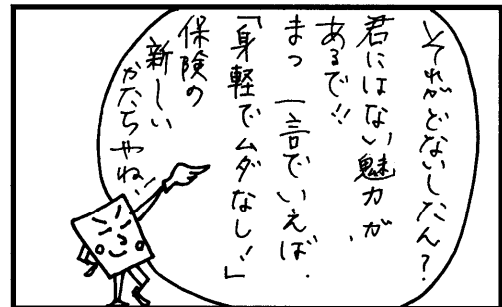 それがどないしたん?
君にはない魅力が
あるで!!
まっ 一言でいえば、
「身軽でムダなし!」
保険の
新しい
かたちやね!